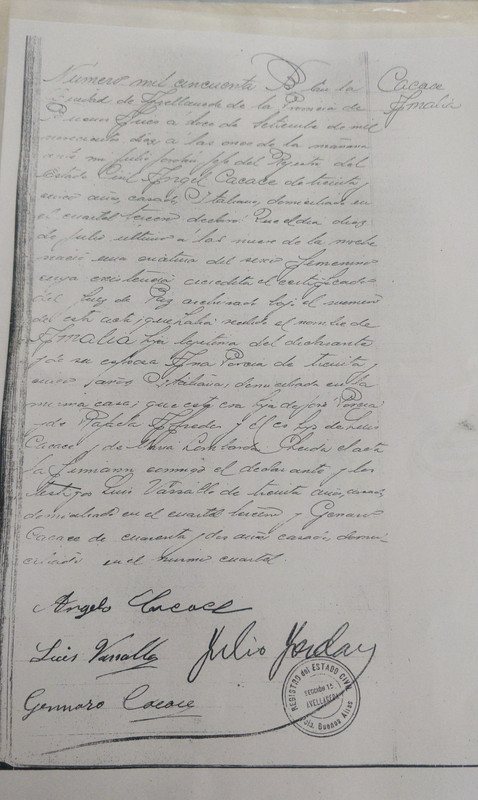 Número mil cincuenta En la
Cacace
Amalia
Ciudad de Avellaneda de la Provincia de
Buenos Aires a doce de Setiembre de mil
novecientos diez a las once de la mañana
ante mi Julio Jordan Jefe del Registro del
Estado Civil Angel Cacace de treinta y
años, casado, Italiano, domiciliado en
el cuartel tercero declaró: Que el dia diez
de Julio último a las nueve de la noche
nació una criatura del sexo femenino
cuya existencia acredita el certificado
del Juez de Paz archivado bajo el numero
de esta acta, que había recibido el nombre de
Amalia hija legitima del declarante
y de su esposa Ana Porcia de treinta y
años, Italiana, domiciliada en la
misma casa; que esta era hija de José Porcia
y de Rafaela y el es hijo de Luis
Cacace y de Maria Lombardo. Leida el acta
la firmaron conmigo el declarante y los
testigos Luis Vassallo de treinta años, casado,
domiciliado en el cuartel tercero y Genaro
Cacace de cuarenta y dos años casado, domi-
ciliado en el mismo cuartel.
Angelo Cacace
Luis Vassallo
Julio Jordan
Gennaro Cacace
REGISTRO del ESTADO CIVIL
SECCIÓN 15
AVELLANEDA
Buenos Aires